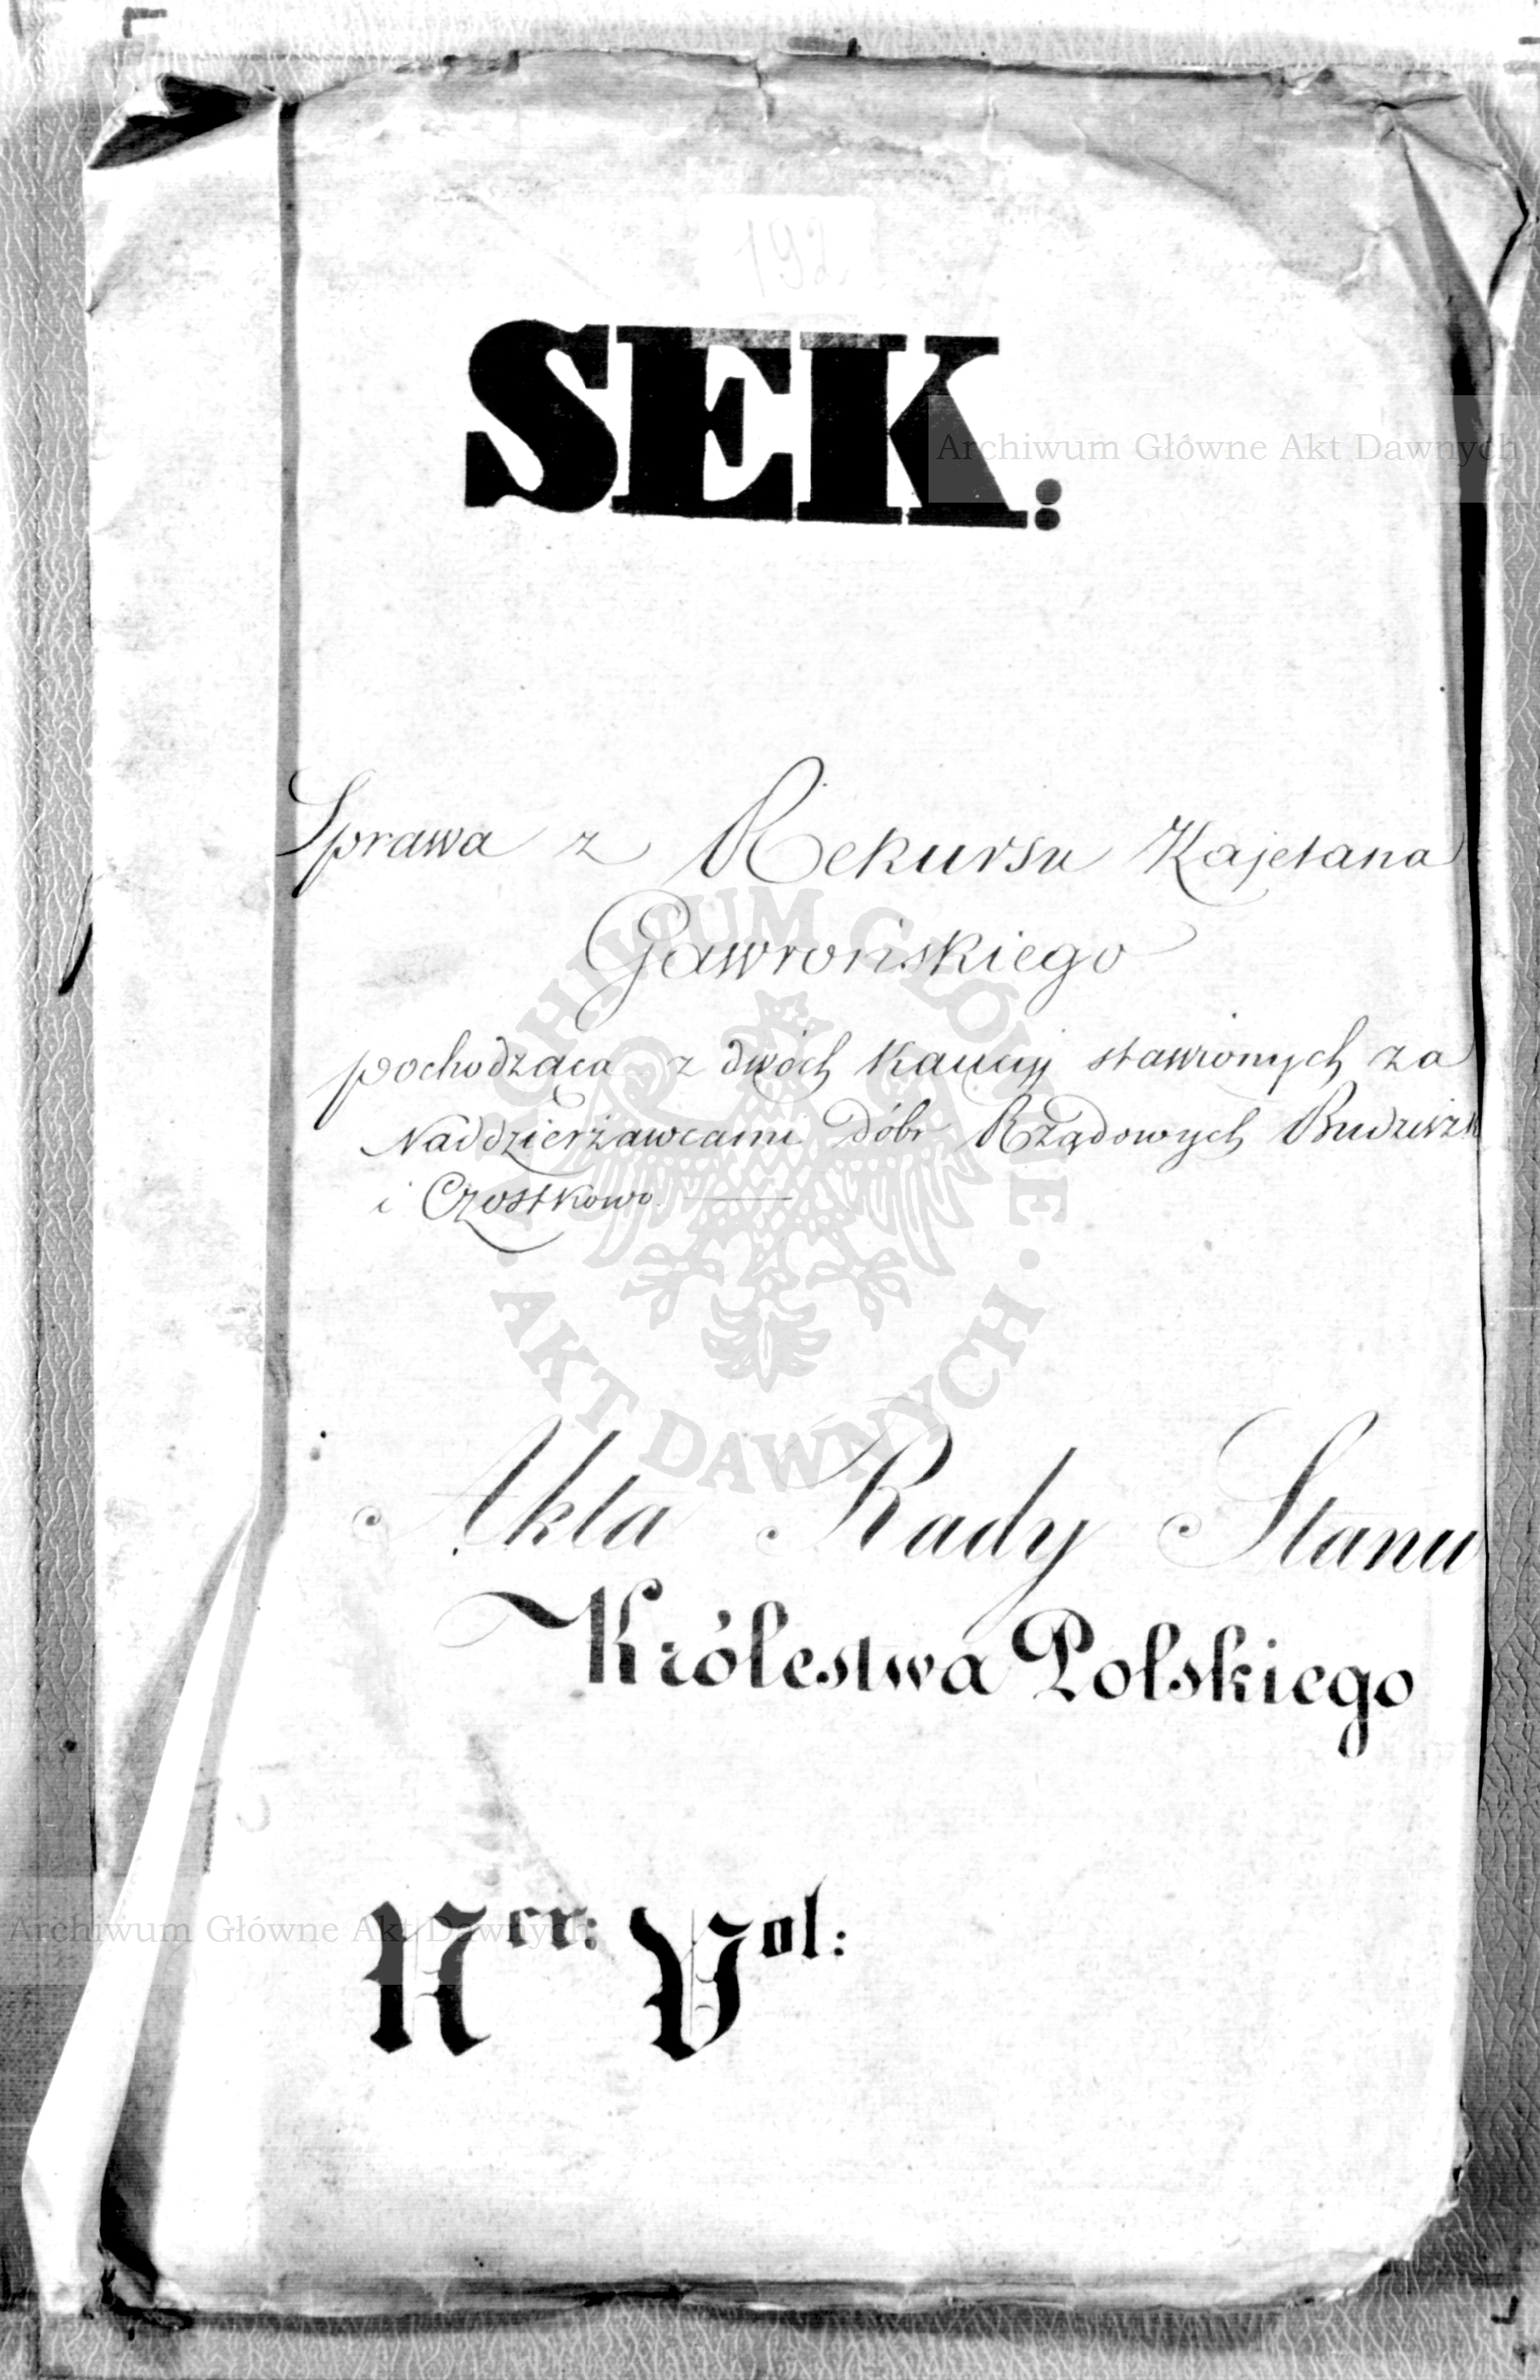 192
SEK:
Archiwum Główne Akt Dawnych
Sprawa z Rekursu Kajetana
Gawrońskiego
pochodząca z dwóch Kaucyj stawionych za
Naddzierżawcami dóbr Rządowych
i Czostkowo.
ARCHIWUM GŁÓWNE AKT DAWNYCH
Akta Rady Stanu
Królestwa Polskiego
Archiwum Główne Akt Dawnych
Ner: Vol: